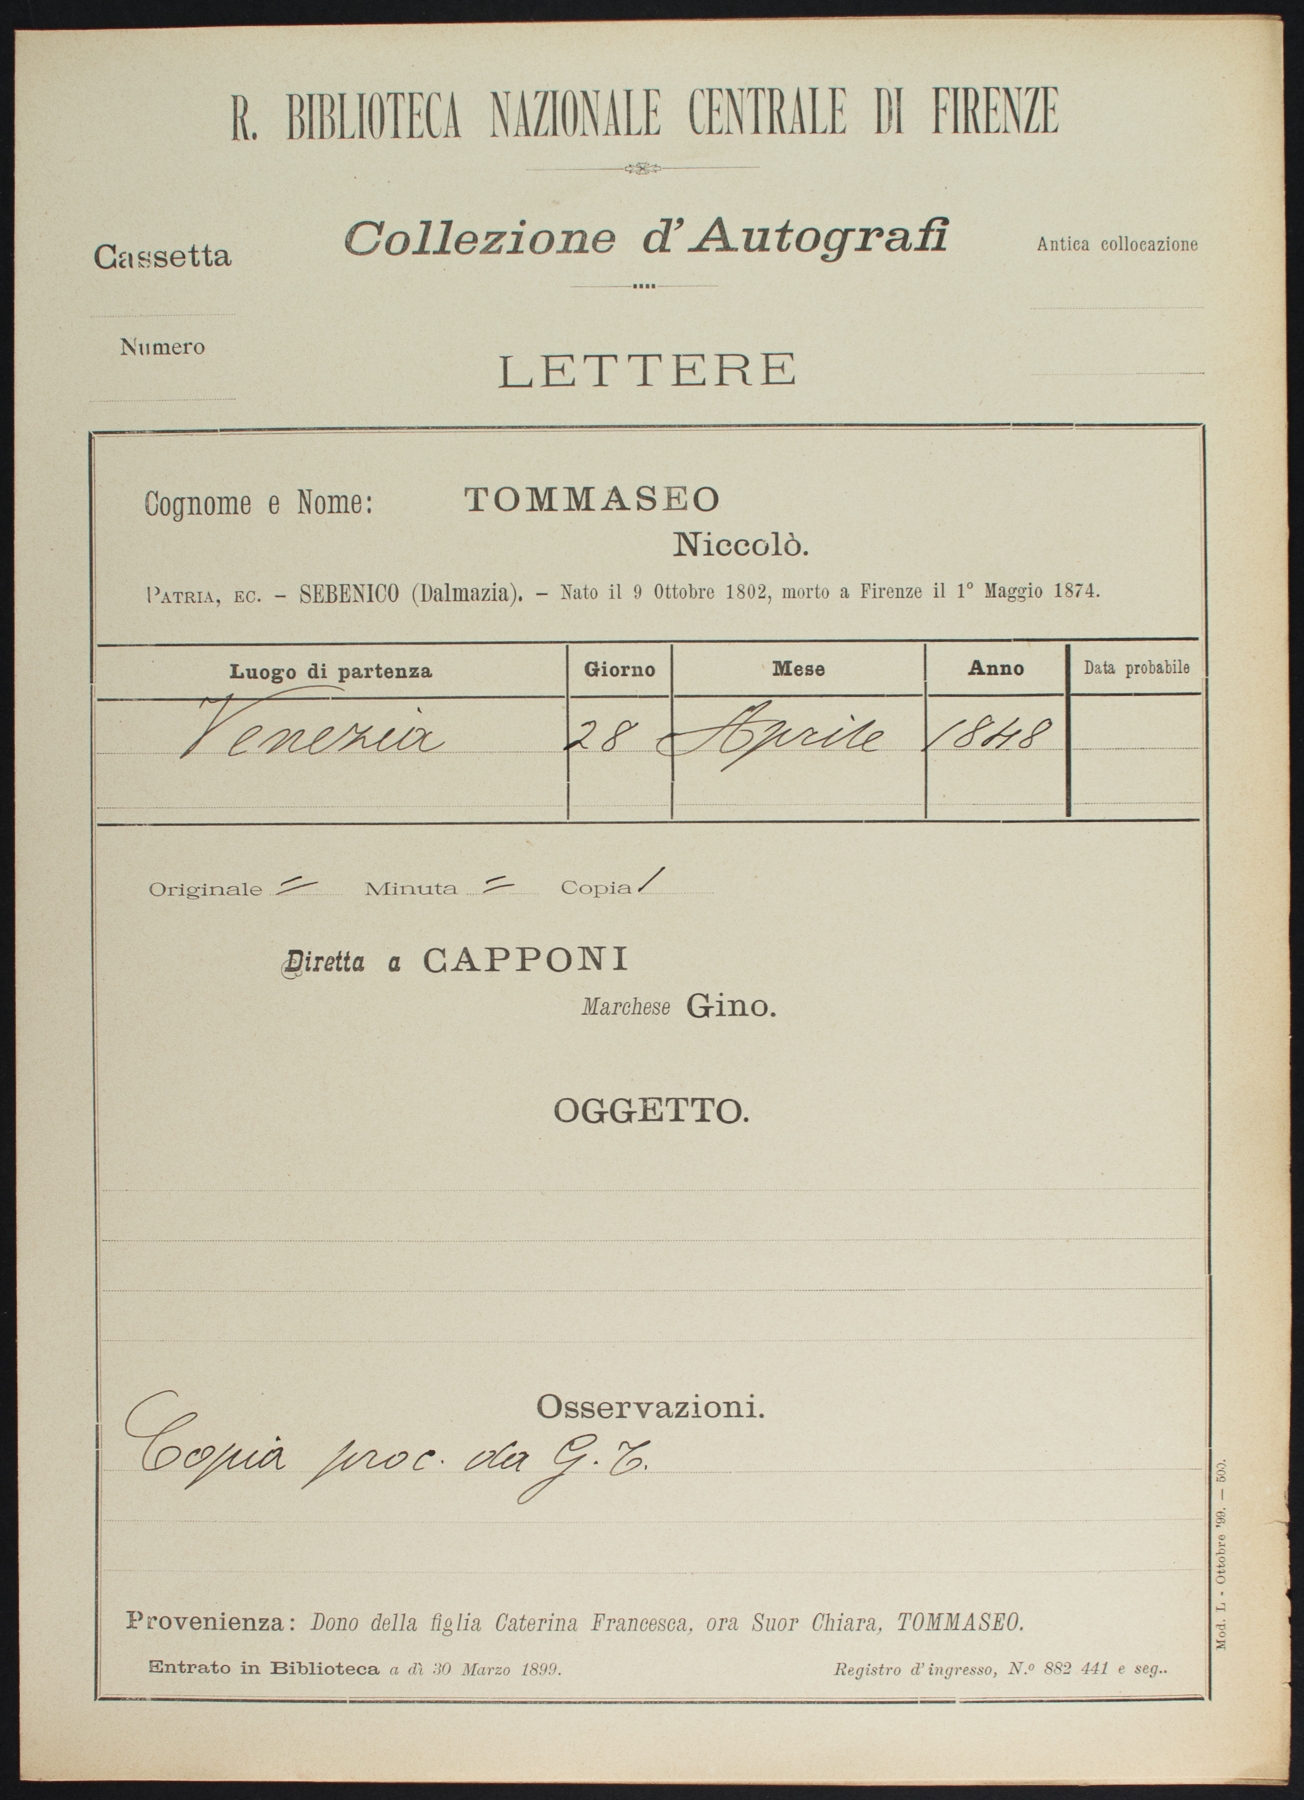 R. BIBLIOTECA NAZIONALE CENTRALE DI FIRENZE
Collezione d'Autografi
Cassetta
Antica collocazione
Numero
LETTERE
Cognome e Nome: TOMMASEO
Niccolò.
PATRIA, EC. – SEBENICO (Dalmazia). – Nato il 9 Ottobre 1802, morto a Firenze il 1° Maggio 1874.
Luogo di partenza Giorno Mese Anno Data probabile
Venezia 28 Aprile 1848
Originale = Minuta = Copia /
Diretta a CAPPONI
Marchese Gino.
OGGETTO.
Osservazioni.
Copia proc. da G. T.
Provenienza: Dono della figlia Caterina Francesca, ora Suor Chiara, TOMMASEO.
Entrato in Biblioteca a dì 30 Marzo 1899. Registro d'ingresso, N.o 882 441 e seg..
Mod. L - Ottobre '99. — 500.